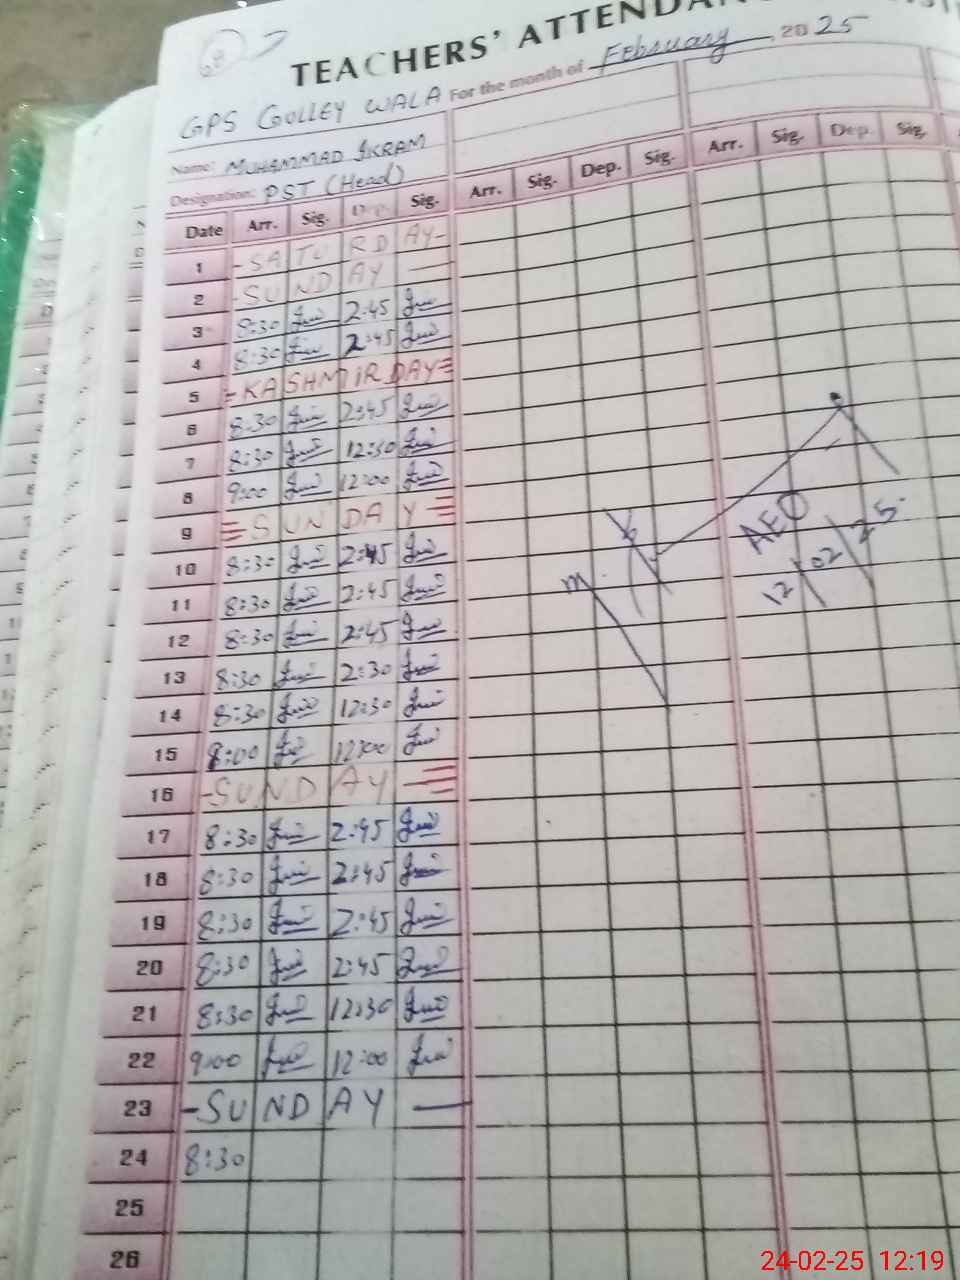 TEACHERS' ATTENDAN
For the month of February, 2025
GPS GULLEY WALA
Name: MUHAMMAD IKRAM
Designation: PST (Head)
Date Arr. Sig. Dep. Sig. Arr. Sig. Dep. Sig. Arr. Sig. Dep. Sig.
1 -SATURDAY-
2 -SUNDAY-
3 8:30 2:45
4 8:30 2:45
5 KASHMIR DAY
6 8:30 2:45
7 8:30 12:30
8 9:00 12:00
9 SUNDAY
10 8:30 2:45
11 8:30 2:45
12 8:30 2:45
13 8:30 2:30
14 8:30 12:30
15 12:00
16 -SUNDAY-
17 8:30 2:45
18 8:30 2:45
19 8:30 2:45
20 8:30 2:45
21 8:30 12:30
22 9:00 12:00
23 -SUNDAY-
24 8:30
25
26
AEO
12/02/25
24-02-25 12:19